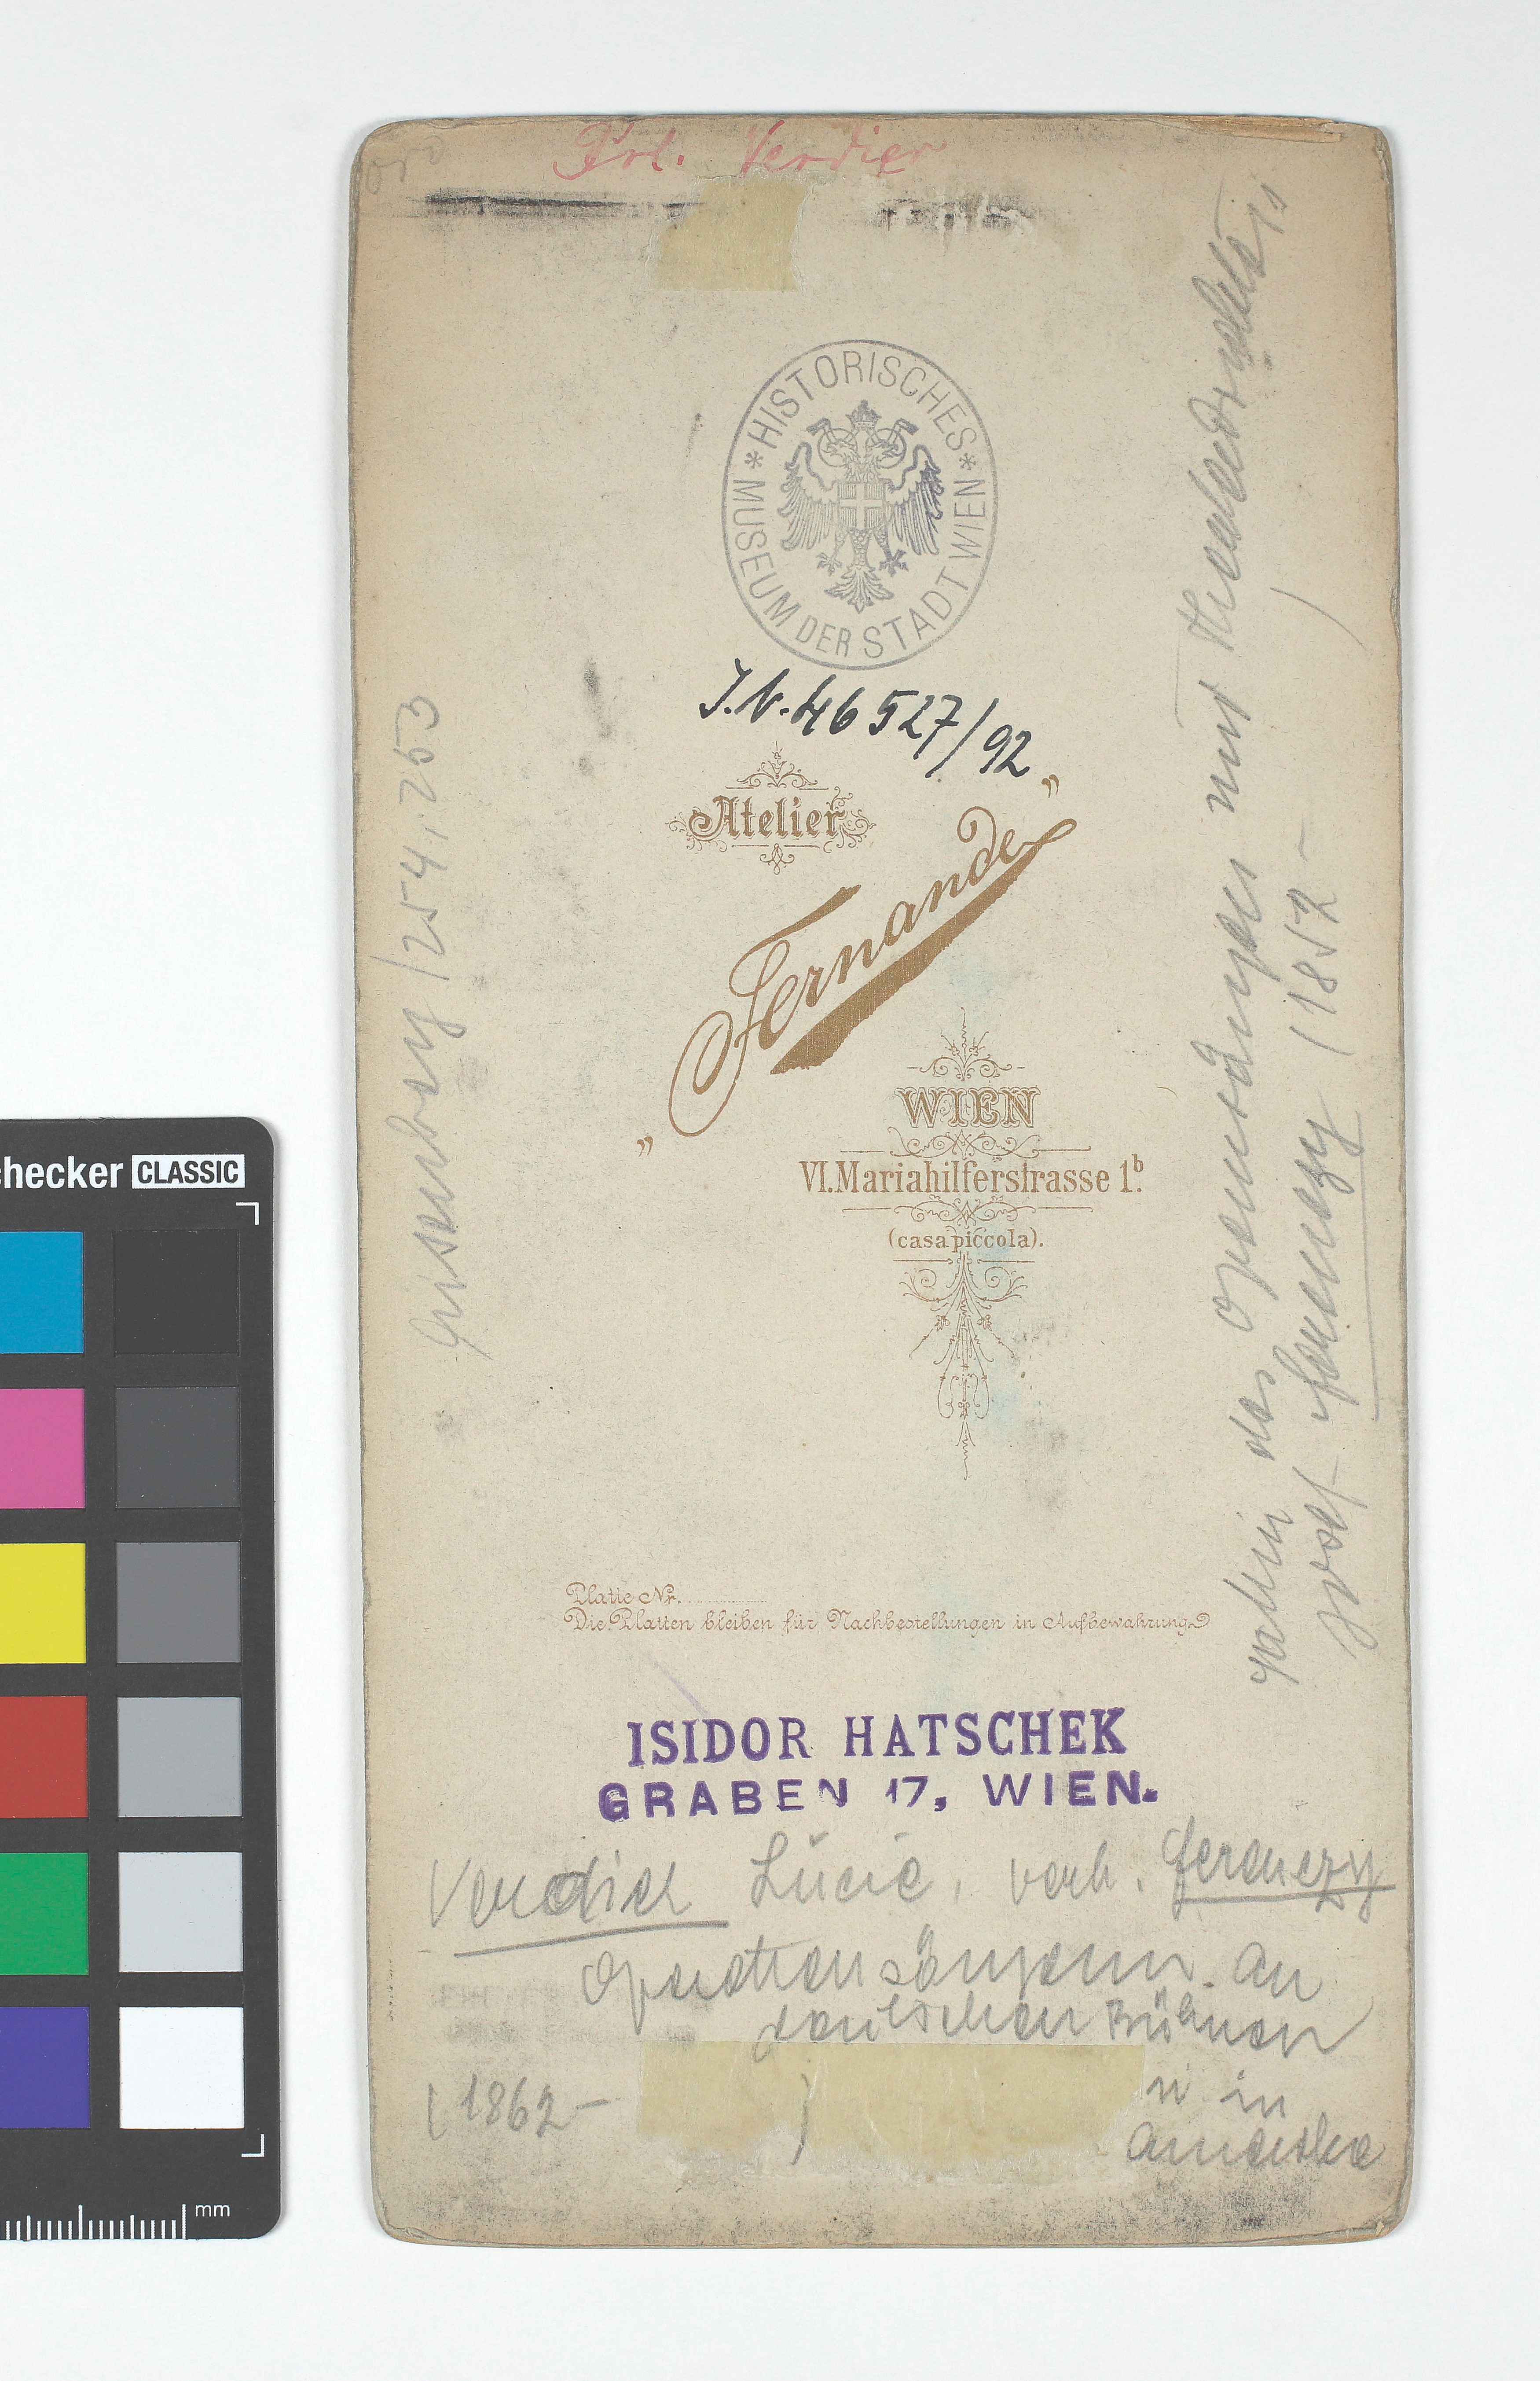 Frl. Verdier
HISTORISCHES
* MUSEUM DER STADT WIEN *
I.N. 46527/92
Atelier
„Fernande”
WIEN
VI. Mariahilferstrasse 1b.
(casa piccola).
Platte Nr.
Die Platten bleiben für Nachbestellungen in Aufbewahrung
ISIDOR HATSCHEK
GRABEN 17, WIEN.
Verdier Lucie, verh. Ferenczy
Operettensängerin an
deutschen Bühnen
u in
Amerika
(1862– )
Eisenberg / 254, 253
Gattin des Opernsängers und Theaterdirektors
Josef Ferenczy (1852– )
checker CLASSIC
mm